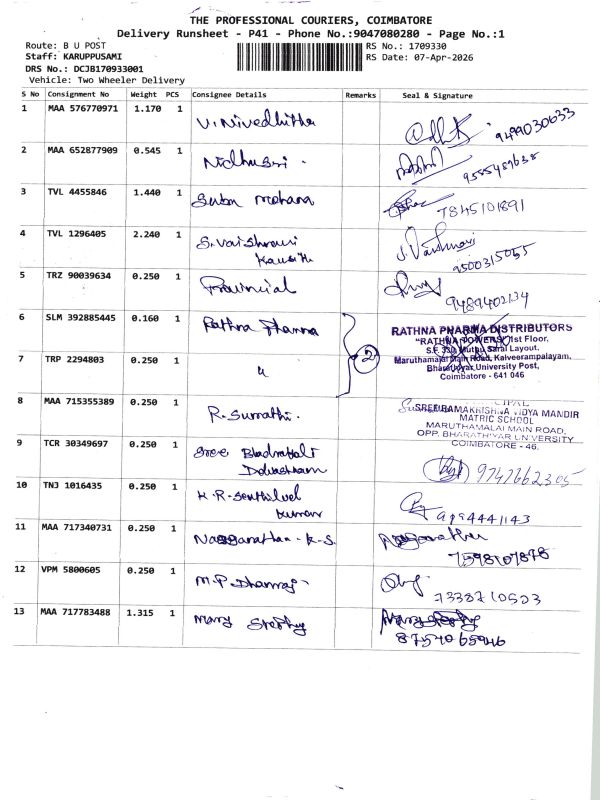 THE PROFESSIONAL COURIERS, COIMBATORE
Delivery Runsheet - P41 - Phone No.:9047080280 - Page No.:1
Route: B U POST
RS No.: 1709330
Staff: KARUPPUSAMI
RS Date: 07-Apr-2026
DRS No.: DCJB170933001
Vehicle: Two Wheeler Delivery
S No Consignment No Weight PCS Consignee Details Remarks Seal & Signature
1 MAA 576770971 1.170 1 V. Nivedhitha 9499030633
2 MAA 652877909 0.545 1 Nidhusri . 9555489635
3 TVL 4455846 1.440 1 Suba mohana 7845101891
4 TVL 1296405 2.240 1 S. Vaishnavi J. Vaishnavi
Kausik 9500315055
5 TRZ 90039634 0.250 1 Provincial 9489402134
6 SLM 392885445 0.160 1 Rathna Pharma RATHNA PHARMA DISTRIBUTORS
"RATHNA TOWERS" 1st Floor,
S.F. 330 Muthu Sarai Layout,
7 TRP 2294803 0.250 1 " 2 Maruthamalai Main Road, Kalveerampalayam,
Bharathiyar University Post,
Coimbatore - 641 046
8 MAA 715355389 0.250 1 R. Sumathi. SREE RAMAKRISHNA VIDYA MANDIR
MATRIC SCHOOL
MARUTHAMALAI MAIN ROAD,
OPP. BHARATHIYAR UNIVERSITY
COIMBATORE - 46.
9 TCR 30349697 0.250 1 Sree Bhadrakali
Devastham 9747662305
10 TNJ 1016435 0.250 1 K.R. Senthilvel
kumar 9194441143
11 MAA 717340731 0.250 1 Naganathan - K-S.
7598107878
12 VPM 5800605 0.250 1 M.P. Dhanraj 7338710523
13 MAA 717783488 1.315 1 Mary
8754065946